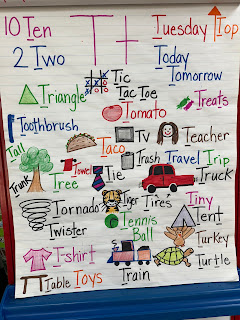 10 Ten Tt Tuesday Top
2 Two Today
Tic Tomorrow
Triangle Tac Toe Treats
Tomato
Toothbrush TV Teacher
Tall Taco
Trash Travel Trip
Trunk Tree Towel Tie Truck
Tornado Tiger Tires Tiny
Twister Tennis Tent
Ball Turkey
T-shirt Turtle
Table Toys Train